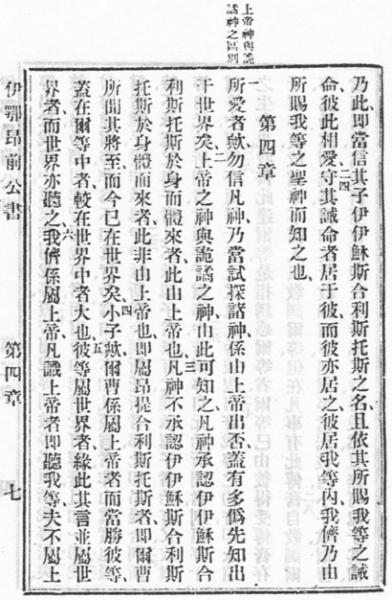 上帝神與詭
譎神之區別
乃此、即當信其子伊伊穌斯合利斯托斯之名、且依其所賜我等之誡
命、彼此相愛、二四守其誡命者、居于彼、而彼亦居之、彼居我等內、我儕乃由
所賜我等之聖神而知之也、
第四章
一所愛者歟、勿信凡神、乃當試探諸神、係由上帝出否、蓋有多僞先知出
于世界矣、二上帝之神與詭譎之神、由此可知之、凡神承認伊伊穌斯合
利斯托斯於身而體來者、此由上帝也、三凡神不承認伊伊穌斯合利斯
托斯於身體而來者、此非由上帝也、即屬昂提合利斯托斯者、即爾曹
所聞其將至、而今已在世界矣、四小子歟、爾曹係屬上帝者、而當勝彼等、
蓋在爾等中者、較在世界中者大也、五彼等屬世界者、緣此其言並屬世
界者、而世界亦聽之、六我儕係屬上帝、凡識上帝者、即聽我等、夫不屬上
伊鄂昂前公書 第四章 七